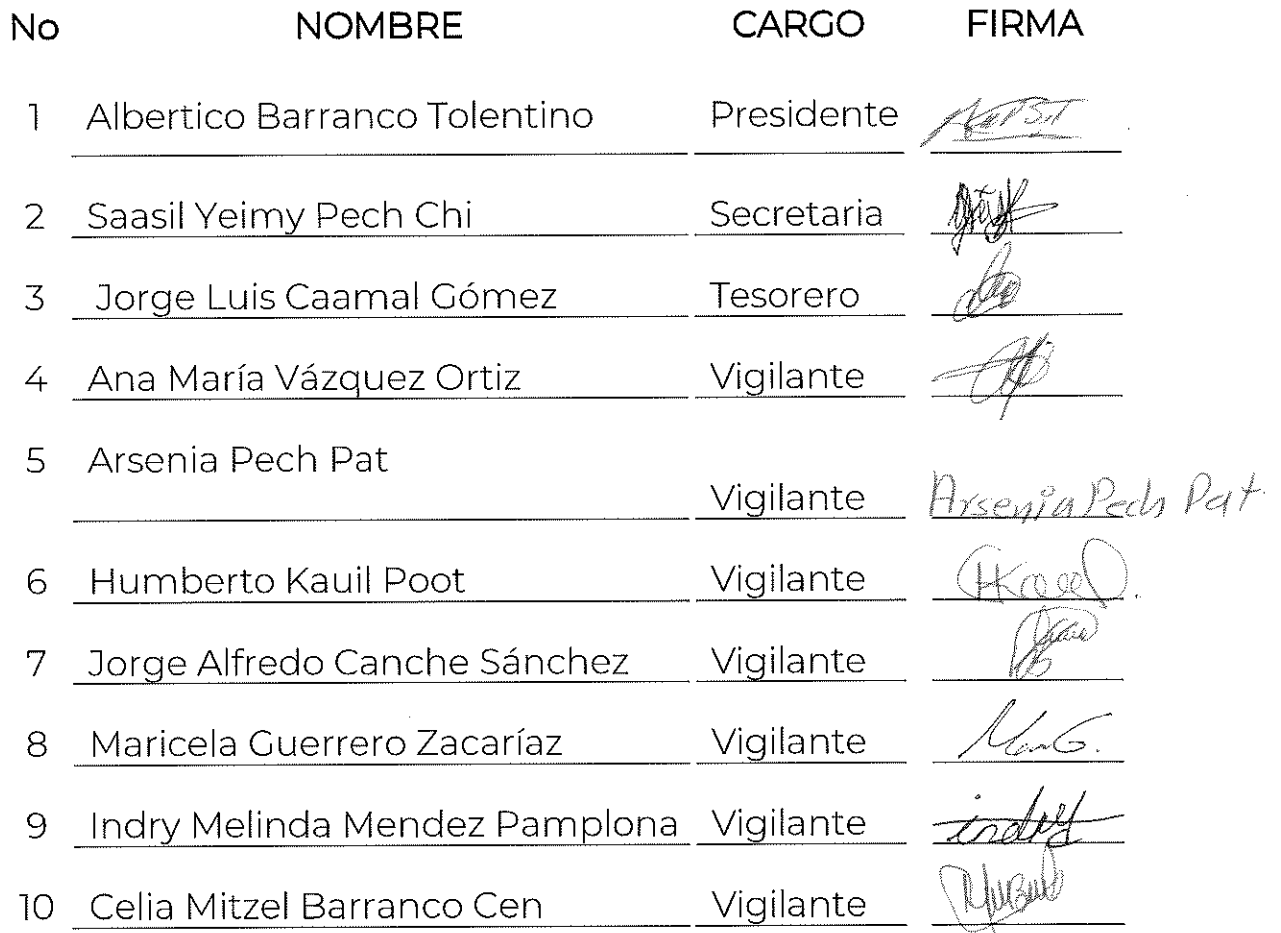 No NOMBRE CARGO FIRMA
1 Albertico Barranco Tolentino Presidente
2 Saasil Yeimy Pech Chi Secretaria
3 Jorge Luis Caamal Gómez Tesorero
4 Ana María Vázquez Ortiz Vigilante
5 Arsenia Pech Pat
Vigilante Arsenia Pech Pat
6 Humberto Kauil Poot Vigilante
7 Jorge Alfredo Canche Sánchez Vigilante
8 Maricela Guerrero Zacaríaz Vigilante
9 Indry Melinda Mendez Pamplona Vigilante indry
10 Celia Mitzel Barranco Cen Vigilante